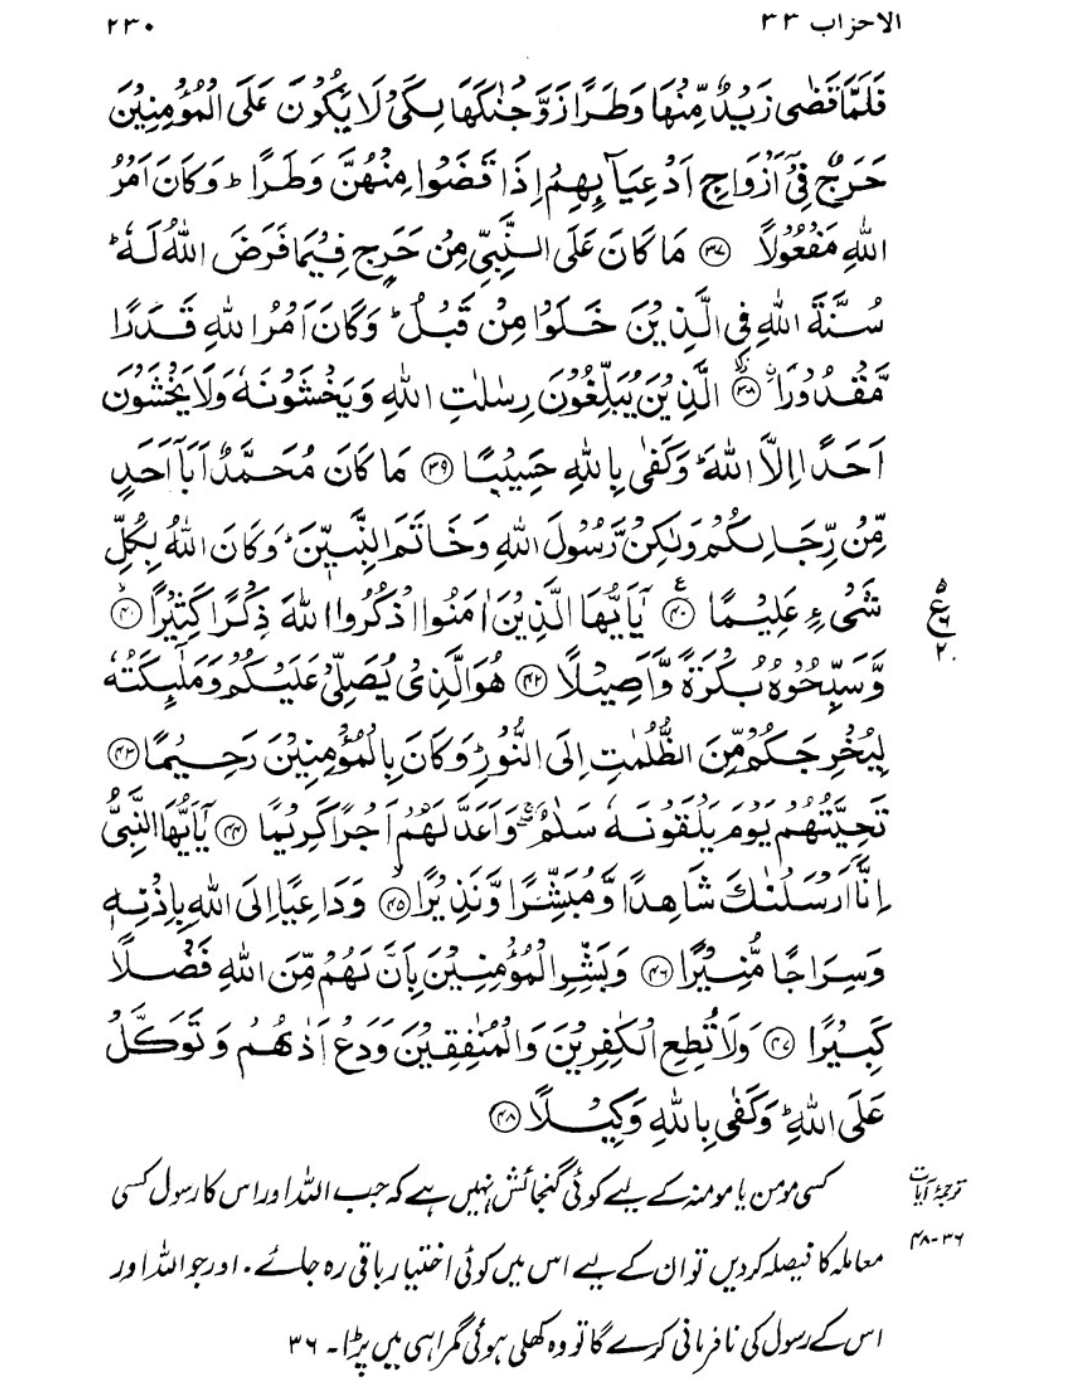 الاحزاب ۳۳
۲۳۰
فَلَمَّا قَضٰى زَيْدٌ مِّنْهَا وَطَرًا زَوَّجْنٰكَهَا لِكَىْ لَا يَكُوْنَ عَلَى الْمُؤْمِنِيْنَ
حَرَجٌ فِىْٓ اَزْوَاجِ اَدْعِيَآىِٕهِمْ اِذَا قَضَوْا مِنْهُنَّ وَطَرًا ؕ وَكَانَ اَمْرُ
اللّٰهِ مَفْعُوْلًا ﴿۳۷﴾ مَا كَانَ عَلَى النَّبِىِّ مِنْ حَرَجٍ فِيْمَا فَرَضَ اللّٰهُ لَهٗ ؕ
سُنَّةَ اللّٰهِ فِى الَّذِيْنَ خَلَوْا مِنْ قَبْلُ ؕ وَكَانَ اَمْرُ اللّٰهِ قَدَرًا
مَّقْدُوْرًا ﴿۳۸﴾ الَّذِيْنَ يُبَلِّغُوْنَ رِسٰلٰتِ اللّٰهِ وَيَخْشَوْنَهٗ وَلَا يَخْشَوْنَ
اَحَدًا اِلَّا اللّٰهَ ؕ وَكَفٰى بِاللّٰهِ حَسِيْبًا ﴿۳۹﴾ مَا كَانَ مُحَمَّدٌ اَبَآ اَحَدٍ
مِّنْ رِّجَالِكُمْ وَلٰكِنْ رَّسُوْلَ اللّٰهِ وَخَاتَمَ النَّبِيّٖنَ ؕ وَكَانَ اللّٰهُ بِكُلِّ
شَىْءٍ عَلِيْمًا ﴿۴۰﴾ يٰٓاَيُّهَا الَّذِيْنَ اٰمَنُوا اذْكُرُوا اللّٰهَ ذِكْرًا كَثِيْرًا ﴿۴۱﴾
ع
۲
وَّسَبِّحُوْهُ بُكْرَةً وَّاَصِيْلًا ﴿۴۲﴾ هُوَ الَّذِىْ يُصَلِّىْ عَلَيْكُمْ وَمَلٰٓىِٕكَتُهٗ
لِيُخْرِجَكُمْ مِّنَ الظُّلُمٰتِ اِلَى النُّوْرِ ؕ وَكَانَ بِالْمُؤْمِنِيْنَ رَحِيْمًا ﴿۴۳﴾
تَحِيَّتُهُمْ يَوْمَ يَلْقَوْنَهٗ سَلٰمٌ ۖۚ وَاَعَدَّ لَهُمْ اَجْرًا كَرِيْمًا ﴿۴۴﴾ يٰٓاَيُّهَا النَّبِىُّ
اِنَّآ اَرْسَلْنٰكَ شَاهِدًا وَّمُبَشِّرًا وَّنَذِيْرًا ﴿۴۵﴾ وَدَاعِيًا اِلَى اللّٰهِ بِاِذْنِهٖ
وَسِرَاجًا مُّنِيْرًا ﴿۴۶﴾ وَبَشِّرِ الْمُؤْمِنِيْنَ بِاَنَّ لَهُمْ مِّنَ اللّٰهِ فَضْلًا
كَبِيْرًا ﴿۴۷﴾ وَلَا تُطِعِ الْكٰفِرِيْنَ وَالْمُنٰفِقِيْنَ وَدَعْ اَذٰىهُمْ وَتَوَكَّلْ
عَلَى اللّٰهِ ؕ وَكَفٰى بِاللّٰهِ وَكِيْلًا ﴿۴۸﴾
ترجمۂ آیات
۳۶-۴۸
کسی مومن یا مومنہ کے لیے کوئی گنجائش نہیں ہے کہ جب اللہ اور اس کا رسول کسی
معاملہ کا فیصلہ کر دیں تو ان کے لیے اس میں کوئی اختیار باقی رہ جائے۔ اور جو اللہ اور
اس کے رسول کی نافرمانی کرے گا تو وہ کھلی ہوئی گمراہی میں پڑا۔ ۳۶